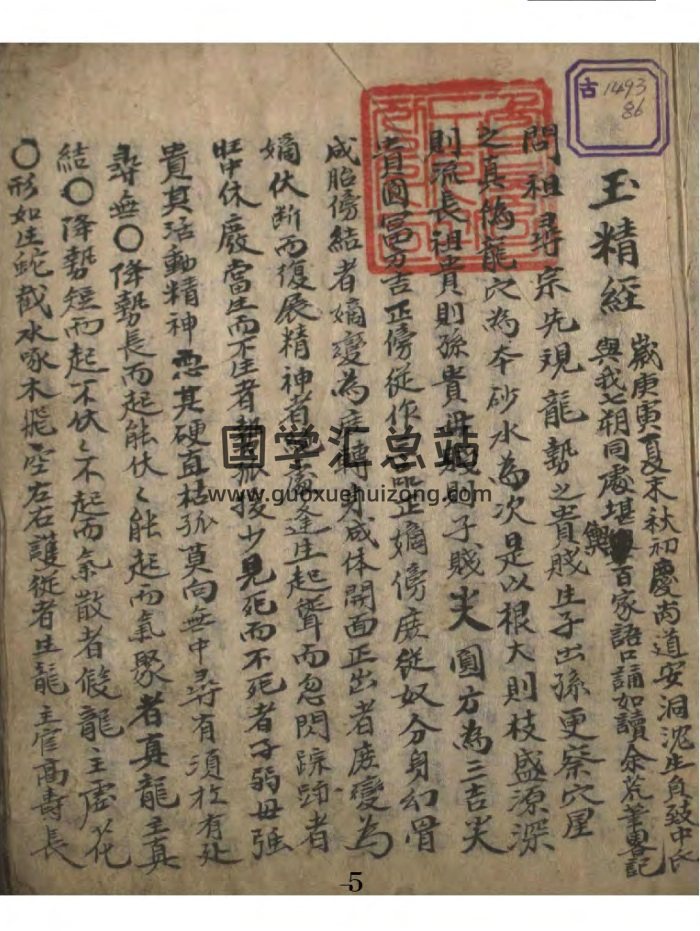 古 1493
86
玉精經
歲庚寅夏末秋初慶尚道安洞沈生員致中氏
與我七朔同處堪輿百家語口誦如讀余荒筆畧記
問祖尋宗先現龍勢之貴賤生子出孫更察穴星
之真偽龍穴為本砂水為次是以根大則枝盛源深
則流長祖貴則孫貴母賤則子賤尖圓方為三吉尖
貴圓富方吉正傍從作 嫡傍庶從奴分身幻骨
成胎傍結者嫡變為庶轉身成体開面正出者庶變為
嫡伏斷而復展精神者 處逢生起聳而忽閃踪跡者
旺中休廢當生而不生者 孤援少見死而不死者子弱母强
貴其活動精神忌其硬直枯孤莫向無中尋有須於有処
尋無〇降勢長而起能伏〻能起而氣聚者真龍主真
結〇降勢短而起不伏〻不起而氣散者假龍主虛花
〇形如生蛇截水啄木飛空左右護從者生龍主官高壽長
国学汇总站
www.guoxuehuizong.com
-5